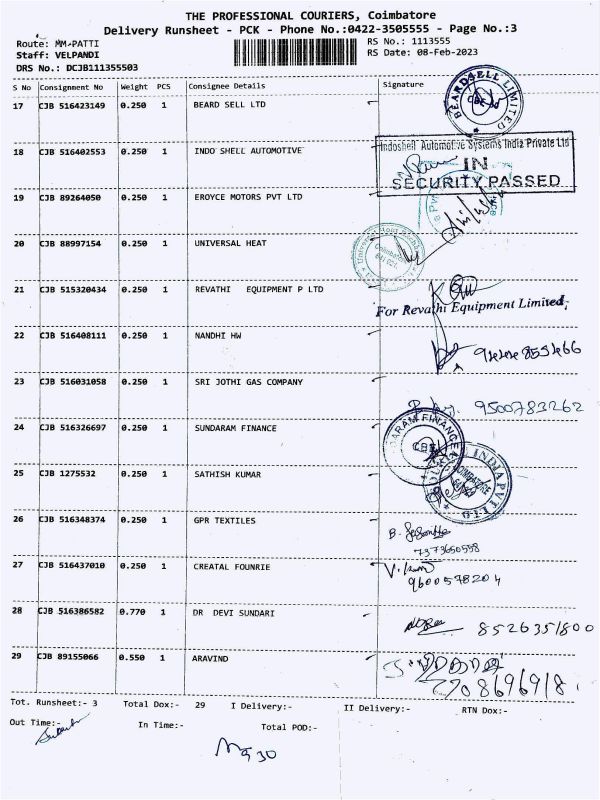 THE PROFESSIONAL COURIERS, Coimbatore
Delivery Runsheet - PCK - Phone No.:0422-3505555 - Page No.:3
Route: MM-PATTI
RS No.: 1113555
Staff: VELPANDI
RS Date: 08-Feb-2023
DRS No.: DCJB111355503
S No Consignment No Weight PCS Consignee Details Signature
17 CJB 516423149 0.250 1 BEARD SELL LTD
BEARDSELL LIMITED
CBE
18 CJB 516402553 0.250 1 INDO SHELL AUTOMOTIVE
Indoshell Automotive Systems India Private Ltd
IN
SECURITY PASSED
19 CJB 89264050 0.250 1 EROYCE MOTORS PVT LTD
20 CJB 88997154 0.250 1 UNIVERSAL HEAT
21 CJB 515320434 0.250 1 REVATHI EQUIPMENT P LTD
For Revathi Equipment Limited,
22 CJB 516408111 0.250 1 NANDHI HW
23 CJB 516031058 0.250 1 SRI JOTHI GAS COMPANY
9500783262
24 CJB 516326697 0.250 1 SUNDARAM FINANCE
CBE
25 CJB 1275532 0.250 1 SATHISH KUMAR
COIMBATORE
26 CJB 516348374 0.250 1 GPR TEXTILES
7373650558
27 CJB 516437010 0.250 1 CREATAL FOUNRIE
9600578204
28 CJB 516386582 0.770 1 DR DEVI SUNDARI
8526351800
29 CJB 89155066 0.550 1 ARAVIND
Tot. Runsheet:- 3 Total Dox:- 29 I Delivery:- II Delivery:- RTN Dox:-
Out Time:- In Time:- Total POD:-